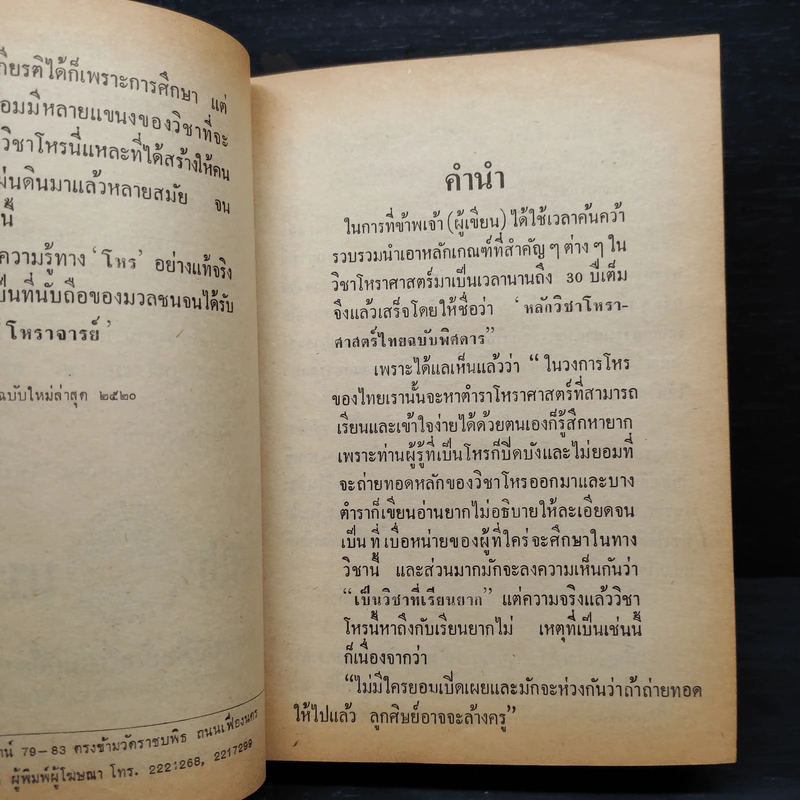 เกียรติได้ก็เพราะการศึกษา แต่
อมมีหลายแขนงของวิชาที่จะ
วิชาโหรนี่แหละที่ได้สร้างให้คน
ผ่นดินมาแล้วหลายสมัย จน
นี้
ความรู้ทาง ‘โหร’ อย่างแท้จริง
ป็นที่นับถือของมวลชนจนได้รับ
โหราจารย์’
ฉบับใหม่ล่าสุด ๒๕๒๐
79–83 ตรงข้ามวัดราชบพิธ ถนนเฟื่องนคร
ผู้พิมพ์ผู้โฆษณา โทร. 2221268, 2217299
คำนำ
ในการที่ข้าพเจ้า (ผู้เขียน) ได้ใช้เวลาค้นคว้า
รวบรวมนำเอาหลักเกณฑ์ที่สำคัญ ๆ ต่าง ๆ ใน
วิชาโหราศาสตร์มาเป็นเวลานานถึง 30 ปีเต็ม
จึงแล้วเสร็จโดยให้ชื่อว่า ‘หลักวิชาโหรา-
ศาสตร์ไทยฉบับพิสดาร”
เพราะได้แลเห็นแล้วว่า “ในวงการโหร
ของไทยเรานั้นจะหาตำราโหราศาสตร์ที่สามารถ
เรียนและเข้าใจง่ายได้ด้วยตนเองก็รู้สึกหายาก
เพราะท่านผู้รู้ที่เป็นโหรก็ปิดบังและไม่ยอมที่
จะถ่ายทอดหลักของวิชาโหรออกมาและบาง
ตำราก็เขียนอ่านยากไม่อธิบายให้ละเอียดจน
เป็น ที่ เบื่อหน่ายของผู้ที่ใคร่จะศึกษาในทาง
วิชานี้ และส่วนมากมักจะลงความเห็นกันว่า
“เป็นวิชาที่เรียนยาก” แต่ความจริงแล้ววิชา
โหรนี้หาถึงกับเรียนยากไม่ เหตุที่เป็นเช่นนี้
ก็เนื่องจากว่า
“ไม่มีใครยอมเปิดเผยและมักจะห่วงกันว่าถ้าถ่ายทอด
ให้ไปแล้ว ลูกศิษย์อาจจะล้างครู”